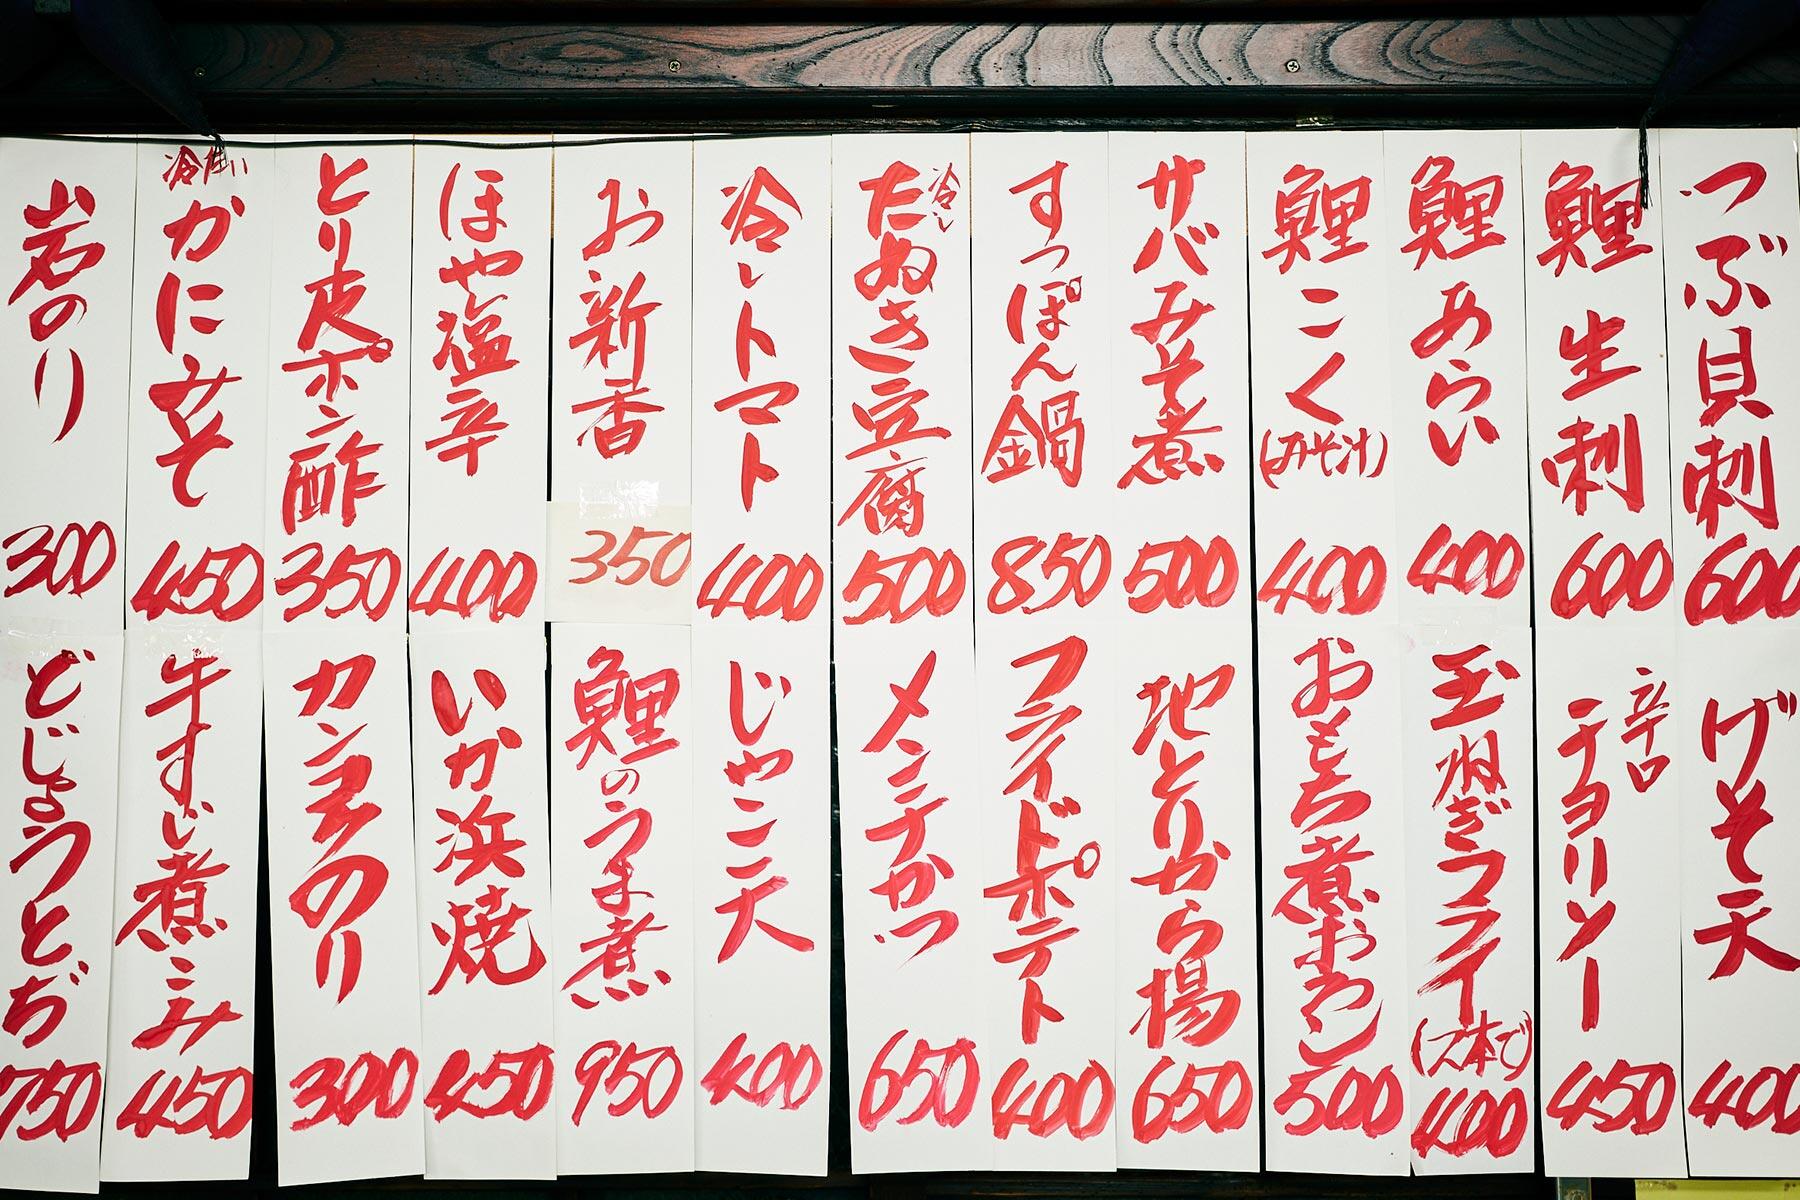 つぶ貝刺 600
鯉生刺 600
鯉あらい 400
鯉こく(みそ汁) 400
サバみそ煮 500
すっぽん鍋 850
冷したぬき豆腐 500
冷しトマト 400
お新香 350
ほや塩辛 400
とり皮ポン酢 350
かにみそ 450
岩のり 300
げそ天 400
辛口チョリソー 450
玉ねぎフライ(2本で) 400
おもち煮おろし 500
地とりから揚 650
フライドポテト 400
メンチかつ 650
じゃこ天 400
鯉のうま煮 950
いか浜焼 450
カンヌキのり 300
牛すじ煮こみ 450
どじょうとぢ 750